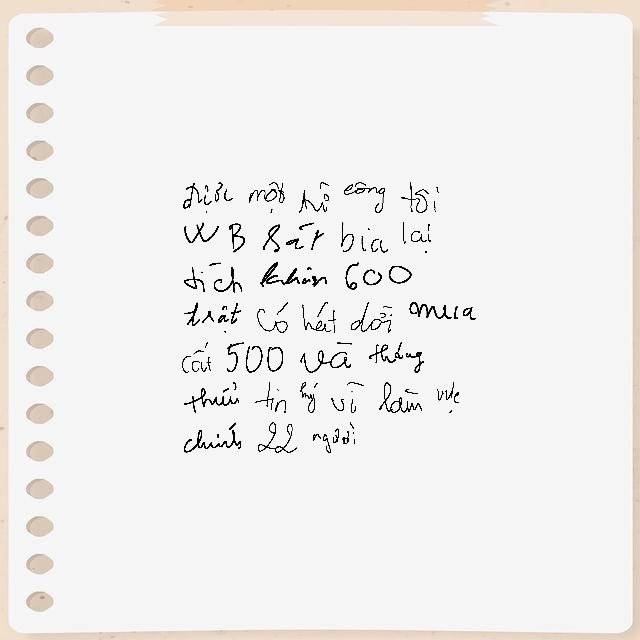 được một hồ công tôi
WB sát bia lại
tích khăn 600
trật có hát dổi mua
cất 500 và tháng
thiếu tin hý vì làm vực
chính 22 người